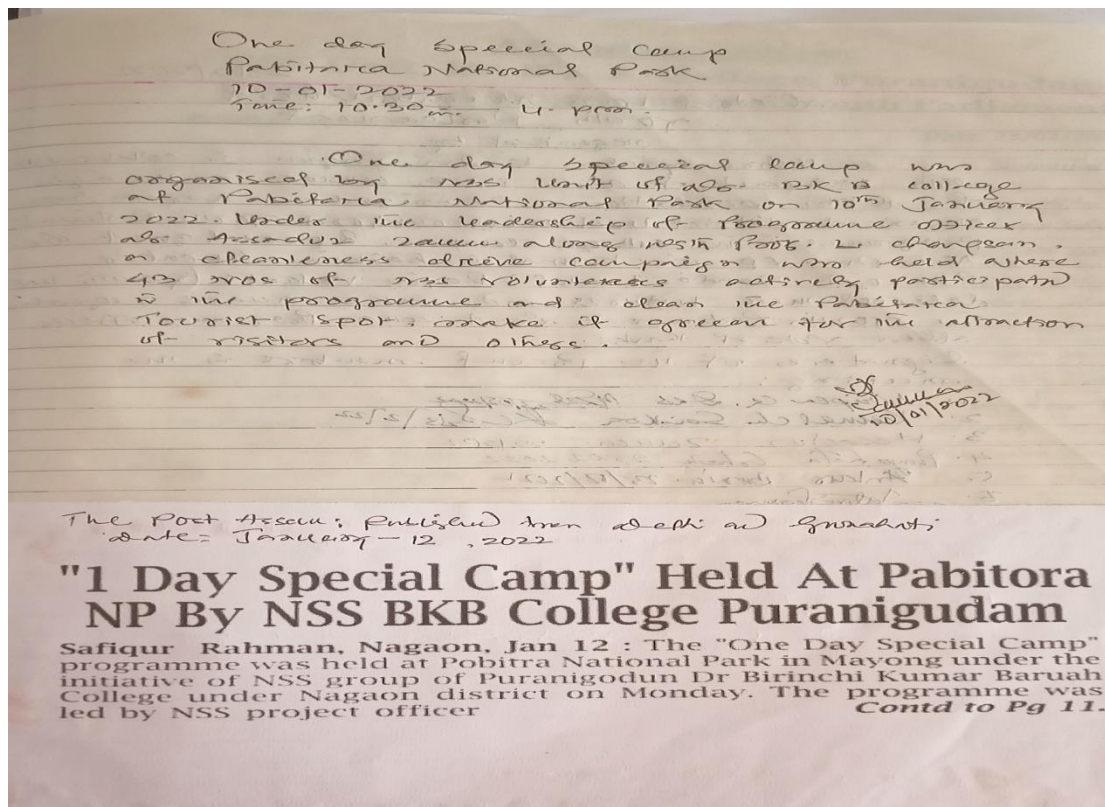 One day Speecial Camp
Pabitarca National Park
10-01-2022
Time: 10.30 am. — 4. pm.
One day Speecial camp was
organised by NSS Unit of Dr. BK B college
at Pabitarca National Park on 10th January
2022. Under the leadership of Programme officer
Dr. Assadur Zaman along with Prof. L. changsan.
A cleanleness drieve campaign was held where
43 nos of NSS volunteeres actively participated
in the programme and clean the Pabitarca
Tourist Spot. make it green for the attraction
of visitors and others.
10/01/2022
The Post Assam; published from Delhi and Guwahati;
Date= January-12, 2022
"1 Day Special Camp" Held At Pabitora
NP By NSS BKB College Puranigudam
Safiqur Rahman, Nagaon, Jan 12 : The "One Day Special Camp"
programme was held at Pobitra National Park in Mayong under the
initiative of NSS group of Puranigodun Dr Birinchi Kumar Baruah
College under Nagaon district on Monday. The programme was
led by NSS project officer Contd to Pg 11.